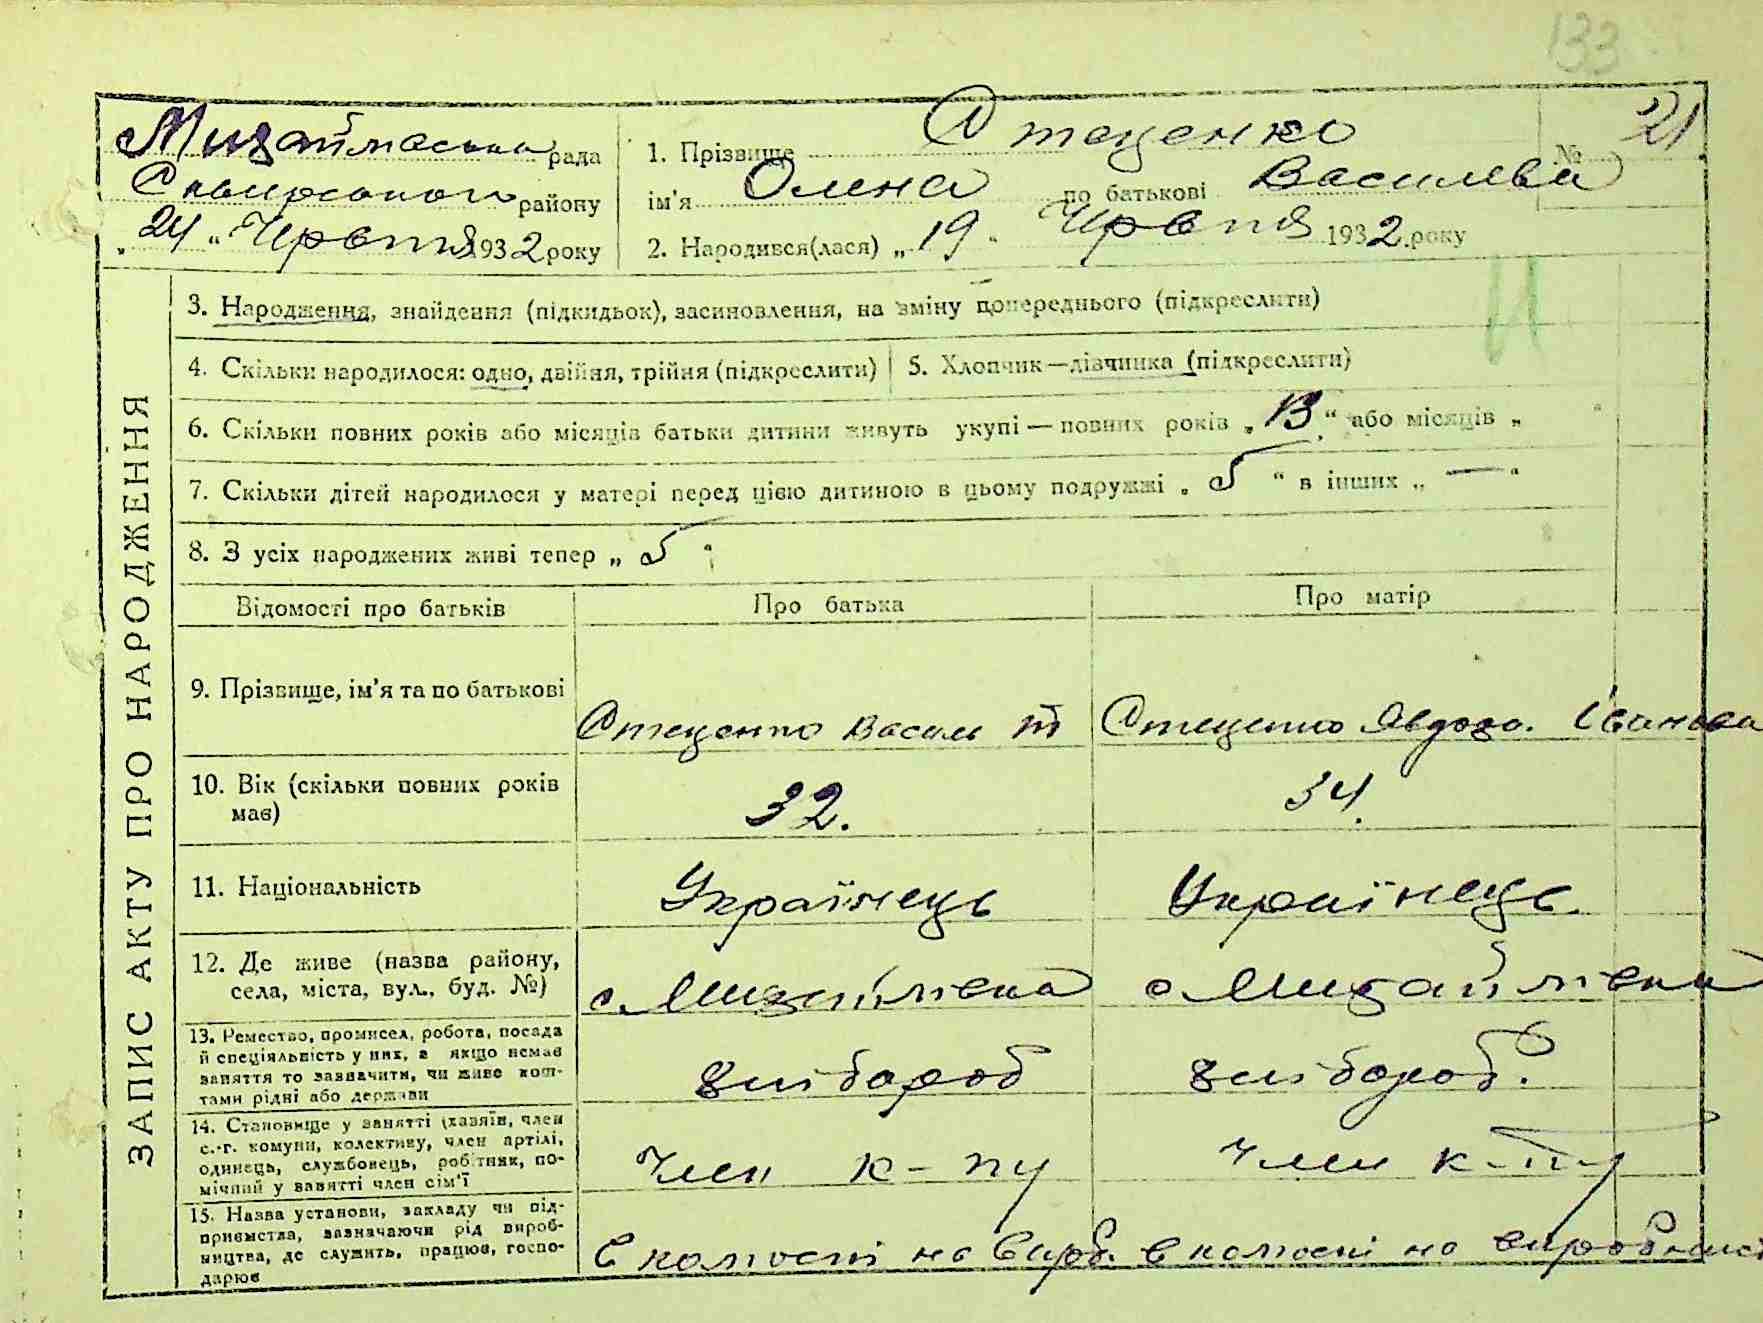 133
Михайлівська рада
Сквирського району
„ 24 “ Червня 1932 року
1. Прізвище Стеценко № 21
ім'я Олена по батькові Василева
2. Народився(лася) „ 19 “ Червня 1932 року
ЗАПИС АКТУ ПРО НАРОДЖЕННЯ
3. Народження, знайдення (підкидьок), засиновлення, на зміну попереднього (підкреслити)
4. Скільки народилося: одно, двійня, трійня (підкреслити) 5. Хлопчик—дівчинка (підкреслити)
6. Скільки повних років або місяців батьки дитини живуть укупі — повних років „ 13 “ або місяців „ “
7. Скільки дітей народилося у матері перед цією дитиною в цьому подружжі „ 5 “ в інших „ — “
8. З усіх народжених живі тепер „ 5 “
Відомості про батьків Про батька Про матір
9. Прізвище, ім'я та по батькові
Стеценко Василь Стеценко Явдоха Іванова
10. Вік (скільки повних років
має) 32. 34.
11. Національність Українець Українець
12. Де живе (назва району,
села, міста, вул., буд. №) с Михайлівка с Михайлівка
13. Ремество, промисел, робота, посада
й спеціяльність у них, а якщо немає
заняття то зазначити, чи живе кош-
тами рідні або держави
хлібороб хлібороб.
14. Становище у занятті (хазяїн, член
с.-г. комуни, колективу, член артілі,
одинець, службовець, робітник, по-
мічний у занятті член сім'ї
член к-пу член к-пу
15. Назва установи, закладу чи під-
приємства, зазначаючи рід вироб-
ництва, де служить, працює, госпо-
дарює
в колгоспі на вироб. в колгоспі на